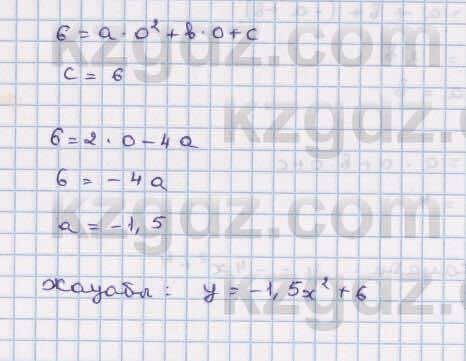 6 = a · 0² + b · 0 + c
c = 6
6 = 2 · 0 - 4a
6 = -4a
a = -1,5
Жауабы: y = -1,5x² + 6
kzgdz.com
kzgdz.com
kzgdz.com
kzgdz.com